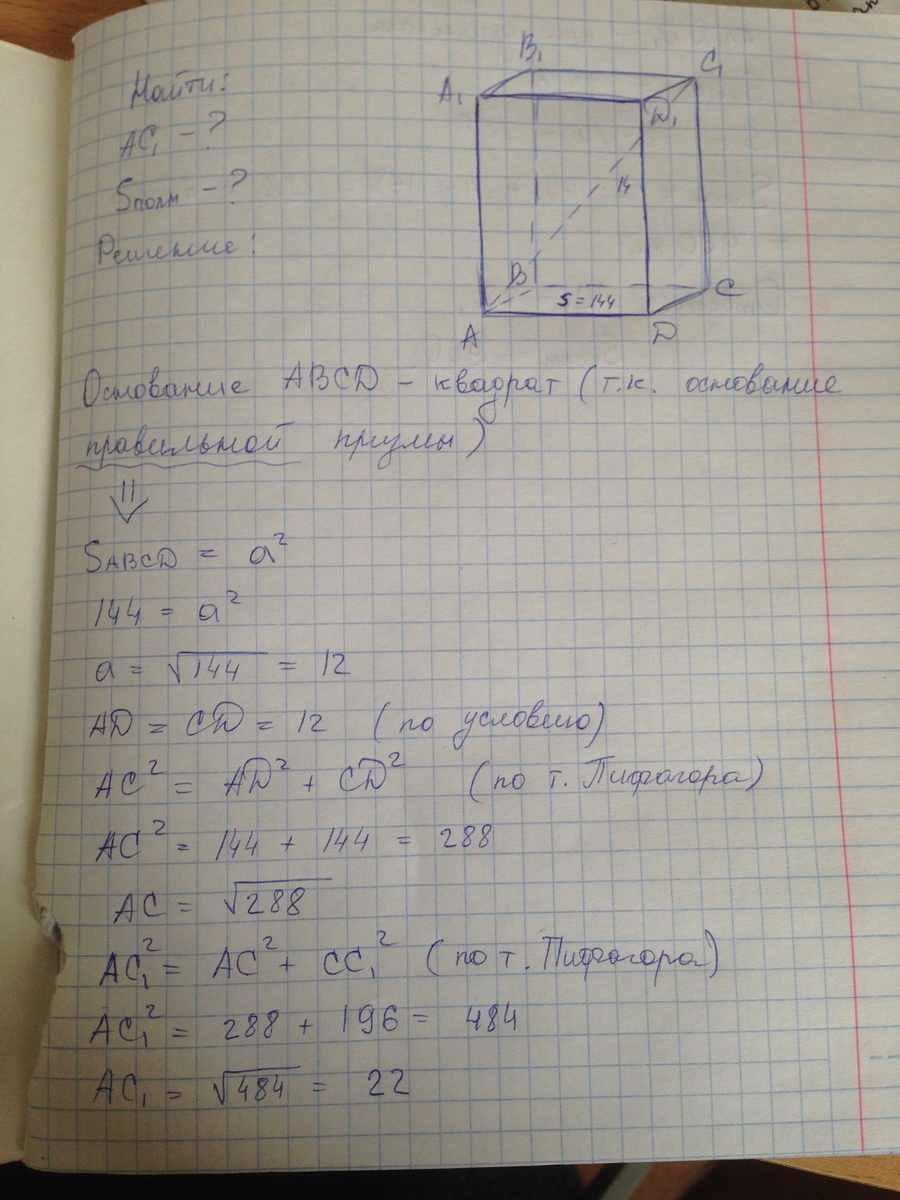 Найти:
AC₁ - ?
Sполн - ?
Решение:
B₁
C₁
A₁
D₁
14
B
C
S = 144
A
D
Основание ABCD - квадрат (т.к. основание
правильной призмы)
⇓
SABCD = a²
144 = a²
a = √144 = 12
AD = CD = 12 (по условию)
AC² = AD² + CD² (по т. Пифагора)
AC² = 144 + 144 = 288
AC = √288
AC₁² = AC² + CC₁² (по т. Пифагора)
AC₁² = 288 + 196 = 484
AC₁ = √484 = 22